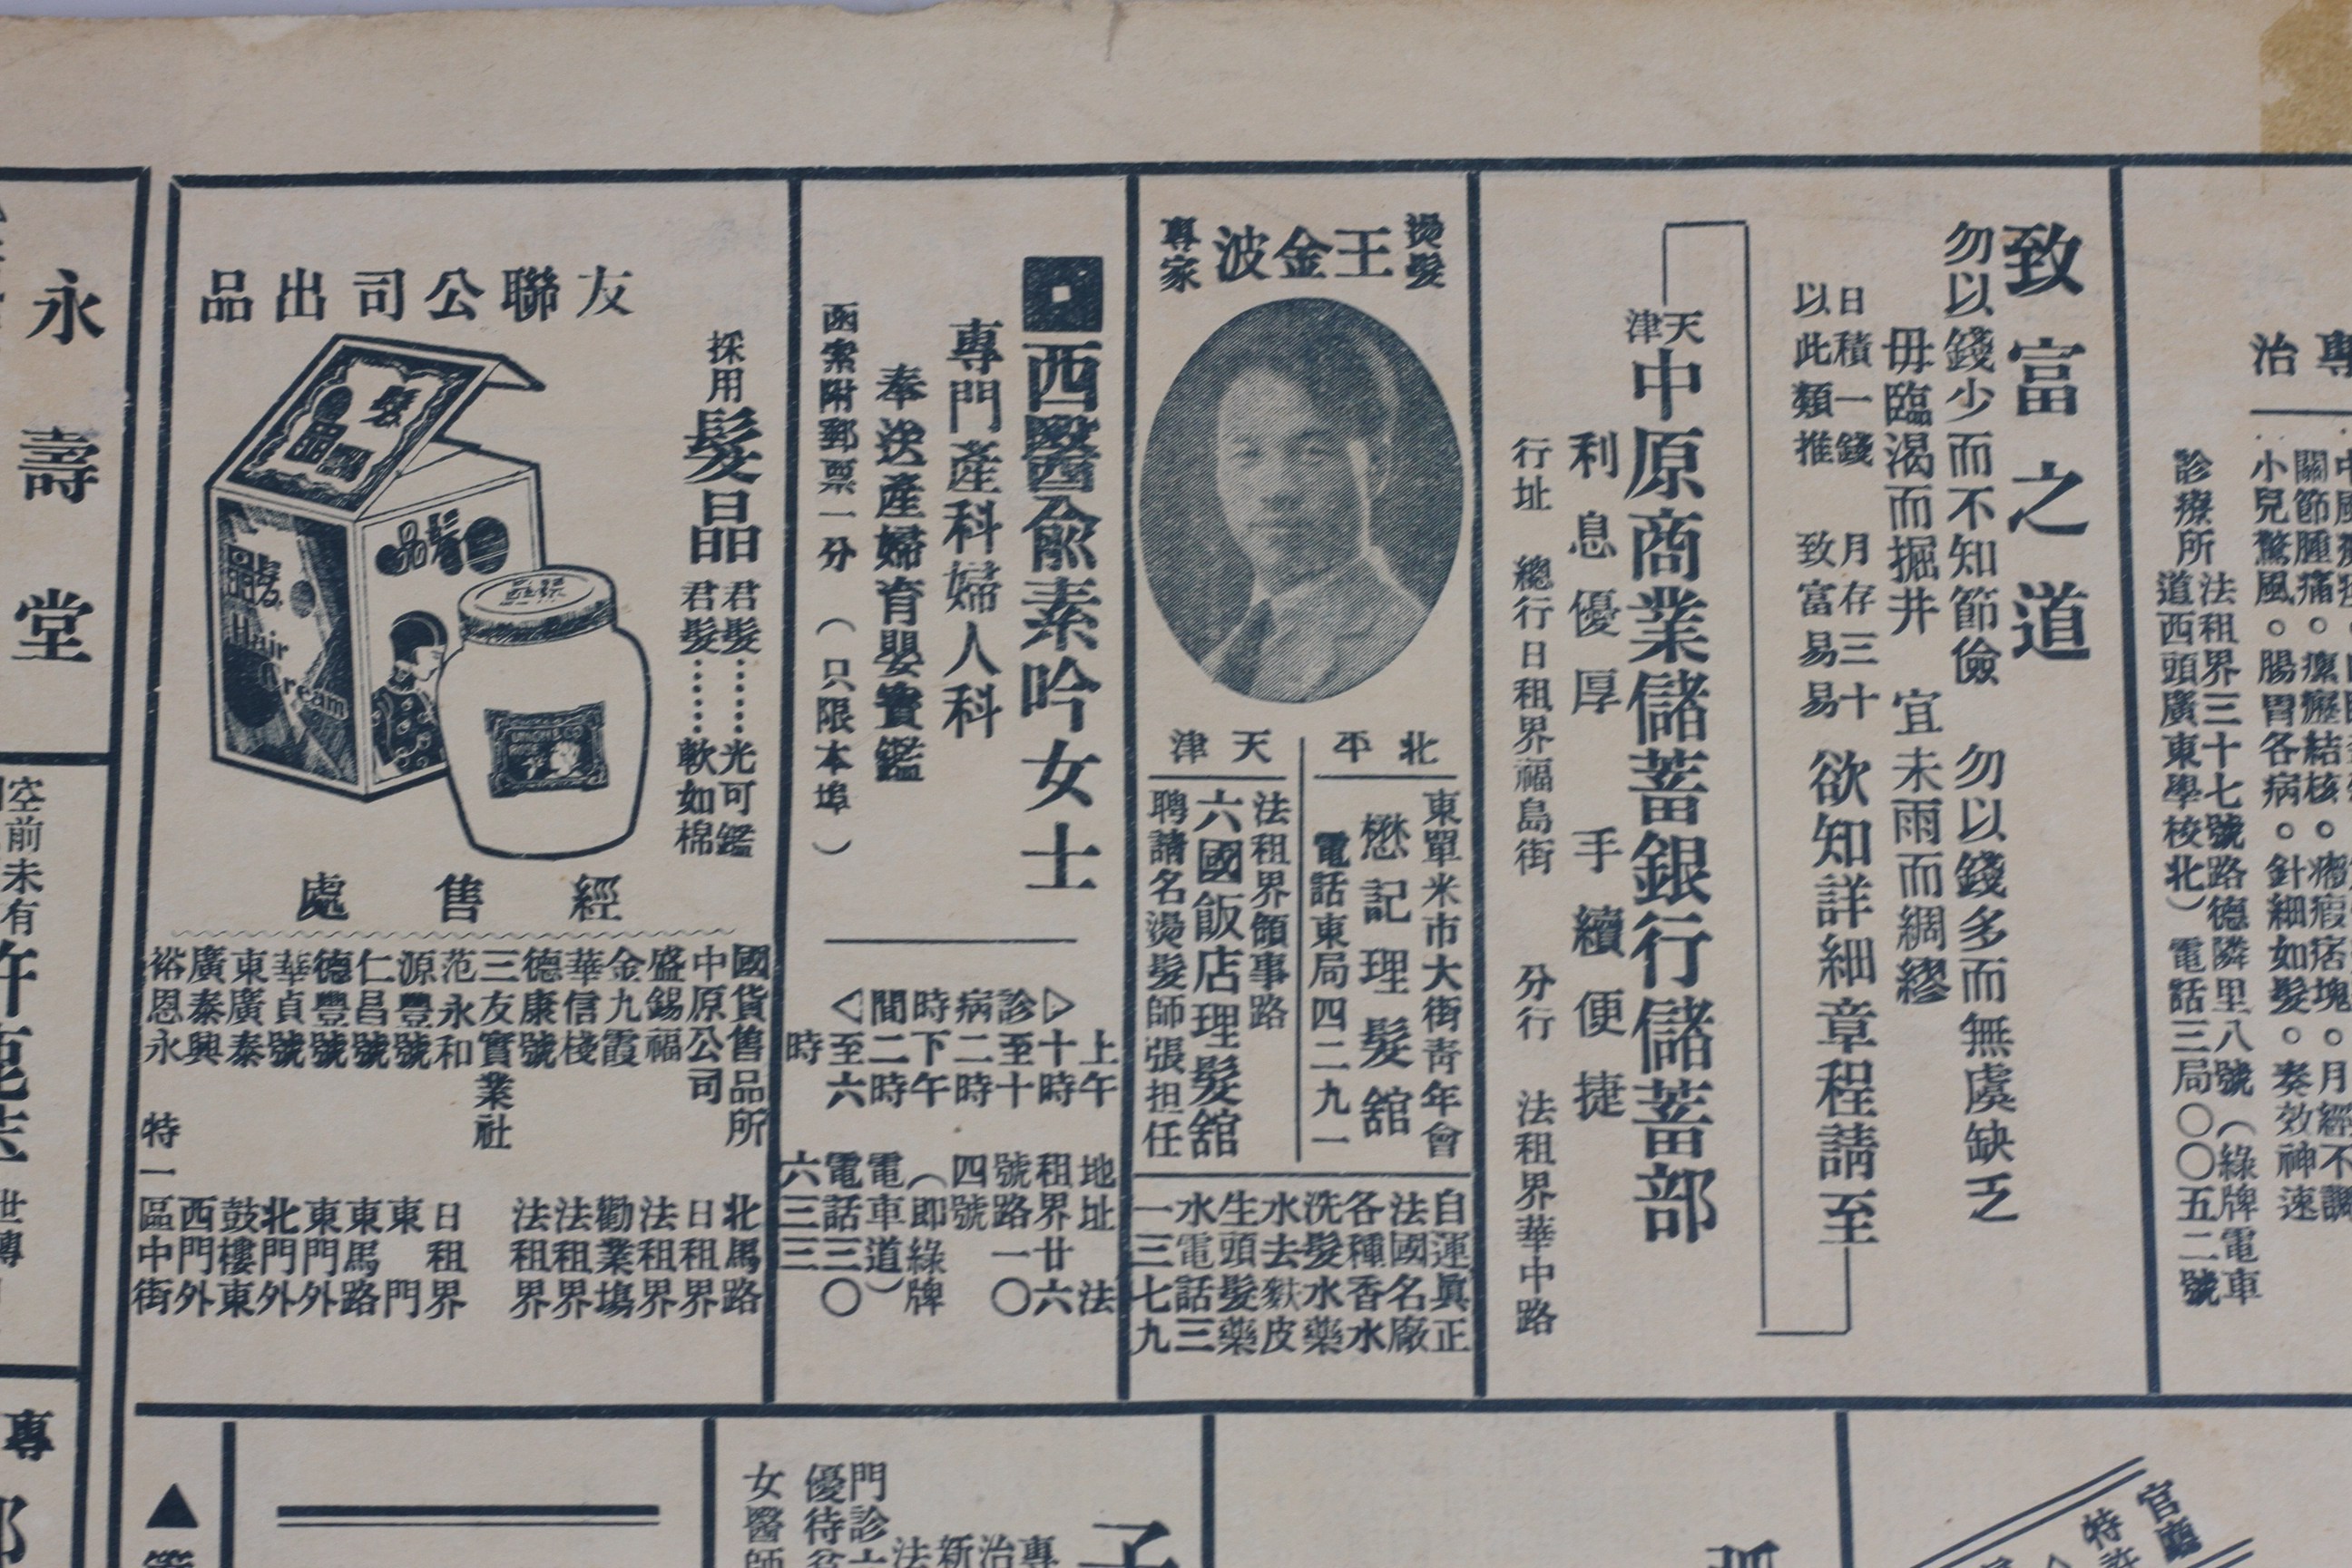 專治
關節腫痛。瘰癧結核。瘢瘕痞塊。月經不調
小兒驚風。腸胃各病。針細如髮。奏效神速
診療所
法租界三十七號路德隣里八號（綠牌電車
道西頭廣東學校北）電話三局〇〇五二號
致富之道
勿以錢少而不知節儉　勿以錢多而無虞缺乏
毋臨渴而掘井　宜未雨而綢繆
日積一錢　月存三十
以此類推　致富易易
欲知詳細章程請至
天津
中原商業儲蓄銀行儲蓄部
利息優厚　手續便捷
行址　總行日租界福島街　分行　法租界華中路
燙髮
王金波
專家
北平
東單米市大街青年會
懋記理髮舘
電話東局四二九一
天津
法租界領事路
六國飯店理髮舘
聘請名燙髮師張担任
自運眞正
法國名廠
各種香水
洗髮水藥
水去麩皮
生頭髮藥
水電話三
一三七九
西醫俞素吟女士
專門產科婦人科
奉送產婦育嬰寶鑑
函索附郵票一分（只限本埠）
診病時間
上午
十時
至十
二時
下午
二時
至六
時
地址　法
租界廿六
號路一〇
四號
（即綠牌
電車道）
電話三〇
六三三
友聯公司出品
採用
髮晶
君髮……光可鑑
君髮……軟如棉
髮晶
髮晶
Hair
Cream
UNION & CO
ROSE
經售處
國貨售品所　北馬路
中原公司　日租界
盛錫福　法租界
金九霞　勸業場
華信棧　法租界
德康號　法租界
三友實業社
范永和　日租界
源豐號　東門
仁昌號　東馬路
德豐號　東門外
華貞號　北門外
東廣泰　鼓樓東
廣泰興　西門外
裕恩永　特一區中街
永壽堂
空前未有
世傳
專
門診
優待
女醫師
專治
新法
子
官廳
特許